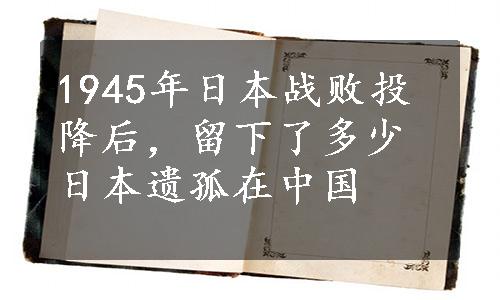 1945年日本战败投
降后，留下了多少
日本遗孤在中国